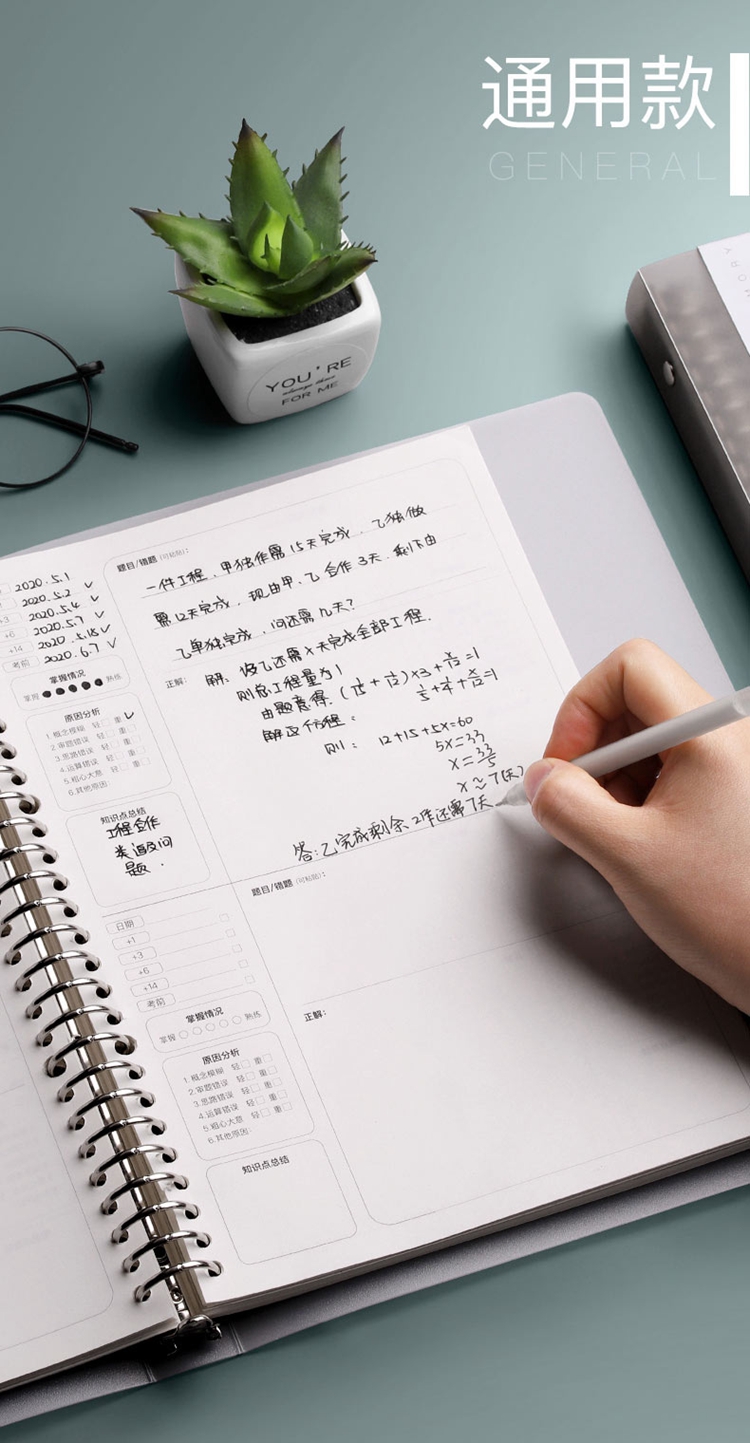 通用款
GENERAL
YOU'RE
always there
FOR ME
2020.5.1
2020.5.2 ✓
+3 2020.5.4 ✓
+6 2020.5.7 ✓
+14 2020.5.15 ✓
考前 2020.6.7 ✓
掌握情况
掌握 ●●●●● 熟练
原因分析
1.概念模糊 轻□ 重✓
2.审题错误 轻□ 重□
3.思路错误 轻□ 重□
4.运算错误 轻□ 重□
5.粗心大意 轻□ 重□
6.其他原因:
知识点总结
工程合作
类追及问
题.
题目/错题(可粘贴):
一件工程,甲独作需15天完成,乙独做
需12天完成,现由甲、乙合作3天,剩下由
乙单独完成,问还需几天?
正解:
解:设乙还需x天完成全部工程.
则总工程量为1
由题意得:(1/15+1/12)×3+x/12=1
解这个方程: 1/5+1/4+x/12=1
则: 12+15+5x=60
5x=33
x=33/5
x≈7(天)
答:乙完成剩余工作还需7天
日期
+1
+3
+6
+14
考前
掌握情况
掌握 ○○○○○ 熟练
原因分析
1.概念模糊 轻□ 重□
2.审题错误 轻□ 重□
3.思路错误 轻□ 重□
4.运算错误 轻□ 重□
5.粗心大意 轻□ 重□
6.其他原因:
知识点总结
题目/错题(可粘贴):
正解: